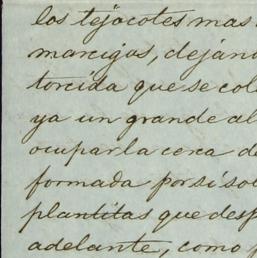 los tejocotes mas
marcigos, dejan
torcida que se col
ya un grande al
ocupar la cera de
formada por si sol
plantitas que desp
adelante, como